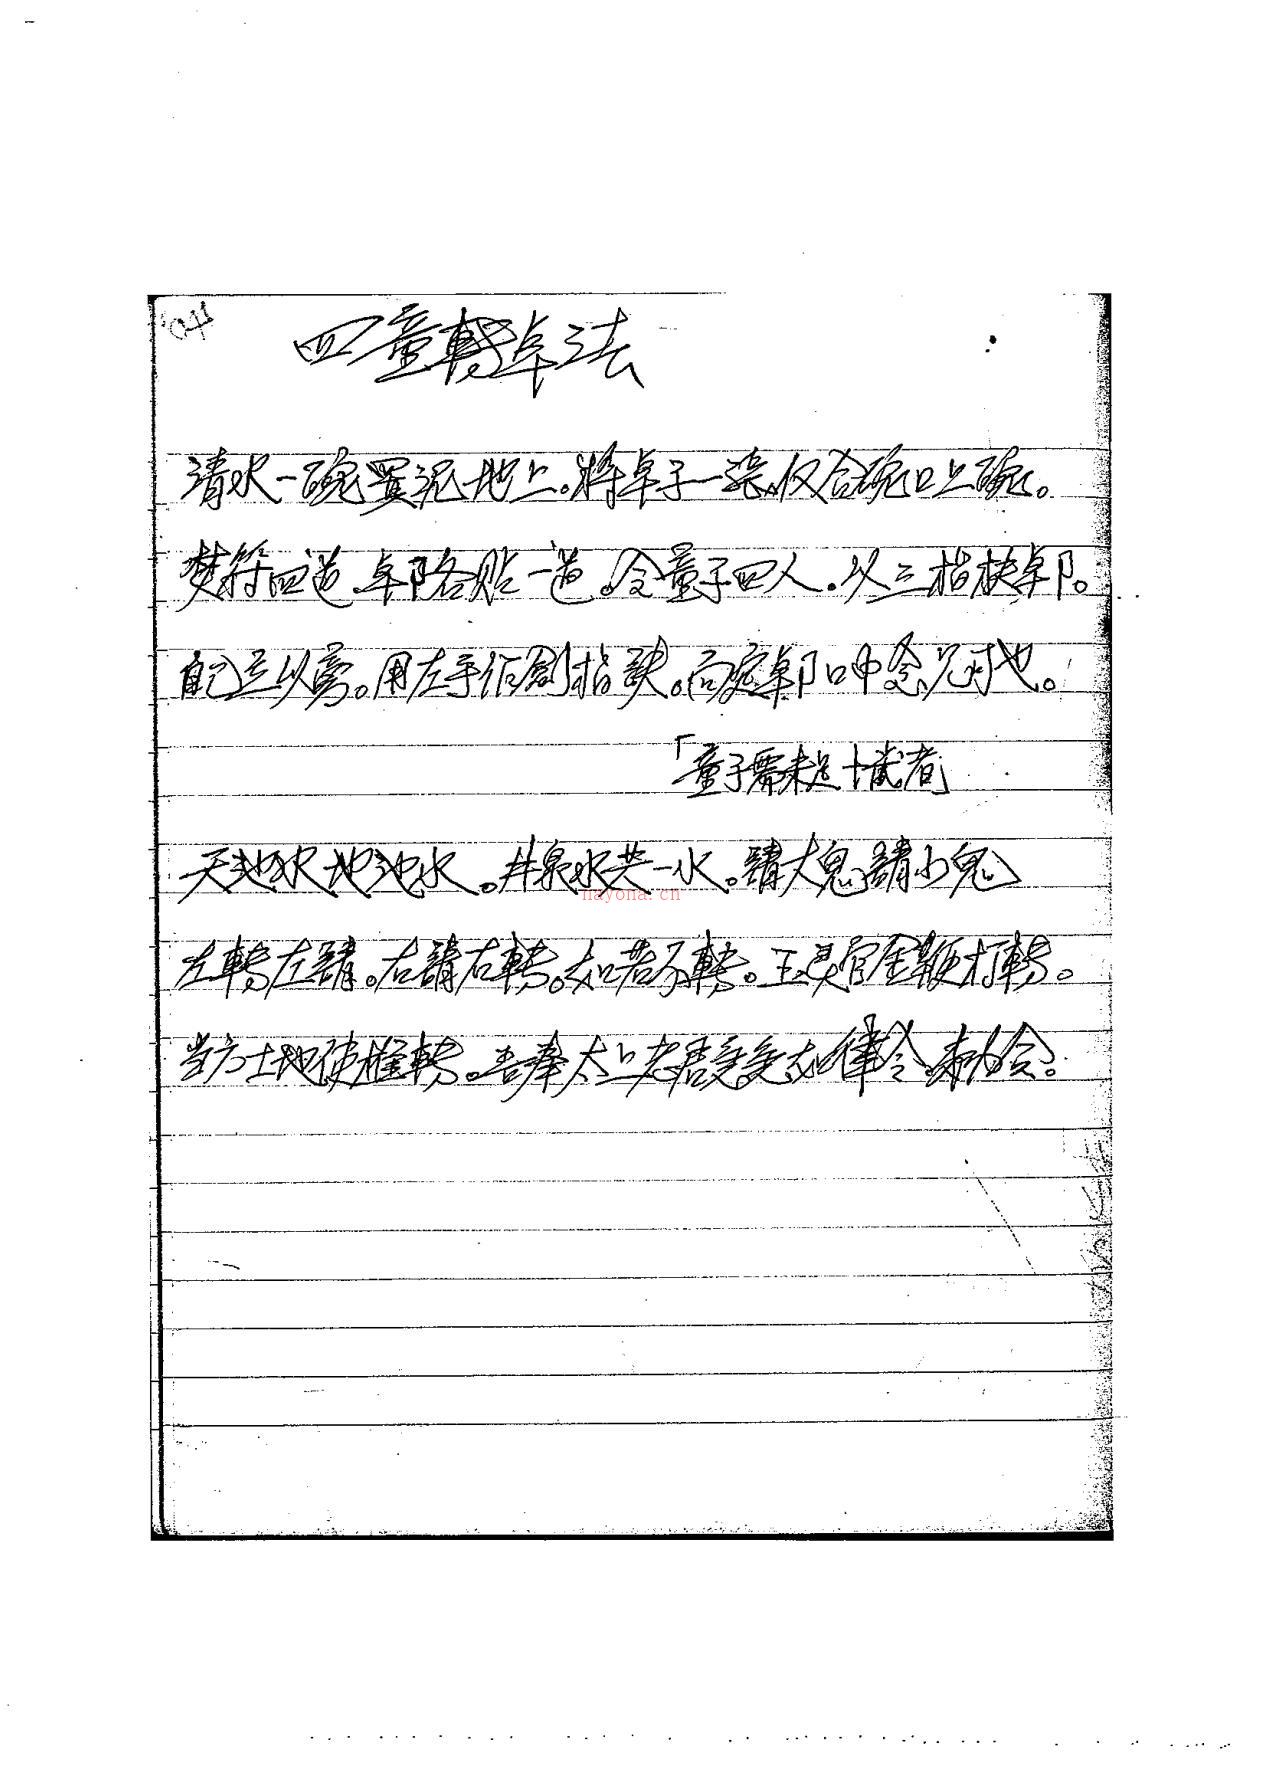 四童轉卓法
清水一碗置泥地上。將卓子一張。仅合碗口上碗。
焚符四道 卓即各貼一道。令童子四人。以三指扶卓即。
自己立以旁。用左手作劍指訣。向庭卓即口中念咒可也。
「童子需未足十歲者」
天池水地池水。井泉水共一水。請大鬼請小鬼
左轉左請。右請右轉。如若不轉。王灵官金鞭打轉。
当方土地使推轉。吾奉太上老君 如律令
nayona.cn